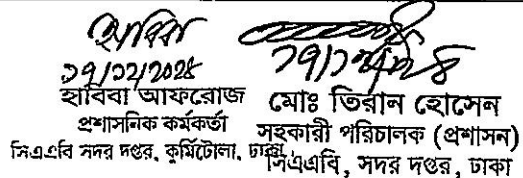 হাবিবা
১৭/১২/২০২৪
হাবিবা আফরোজ
প্রশাসনিক কর্মকর্তা
সিএএবি সদর দপ্তর, কুর্মিটোলা, ঢাকা
মোঃ তিরান হোসেন
সহকারী পরিচালক (প্রশাসন)
সিএএবি, সদর দপ্তর, ঢাকা